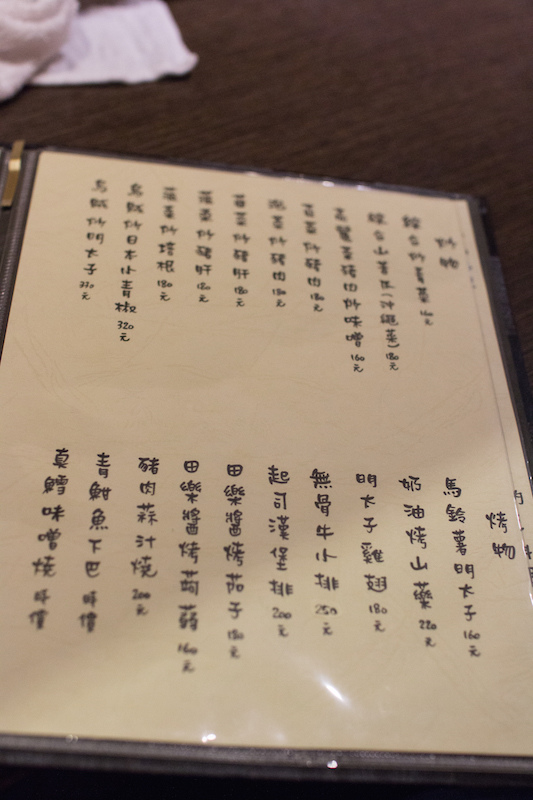 炒物
綜合炒青菜 160元
綜合山苦瓜(沖繩菜) 180元
高麗菜豬肉炒味噌 160元
菜炒豬肉 180元
泡菜炒豬肉 180元
韭菜炒豬肝 180元
菠菜炒豬肝 180元
菠菜炒培根 180元
烏賊炒日本小青椒 320元
烏賊炒明太子 元
烤物
馬鈴薯明太子 160元
奶油烤山藥 220元
明太子雞翅 180元
無骨牛小排 250元
起司漢堡排 200元
田樂醬烤茄子 180元
田樂醬烤蒟蒻 160元
豬肉蒜汁燒 200元
青魽魚下巴 時價
真鱈味噌燒 時價